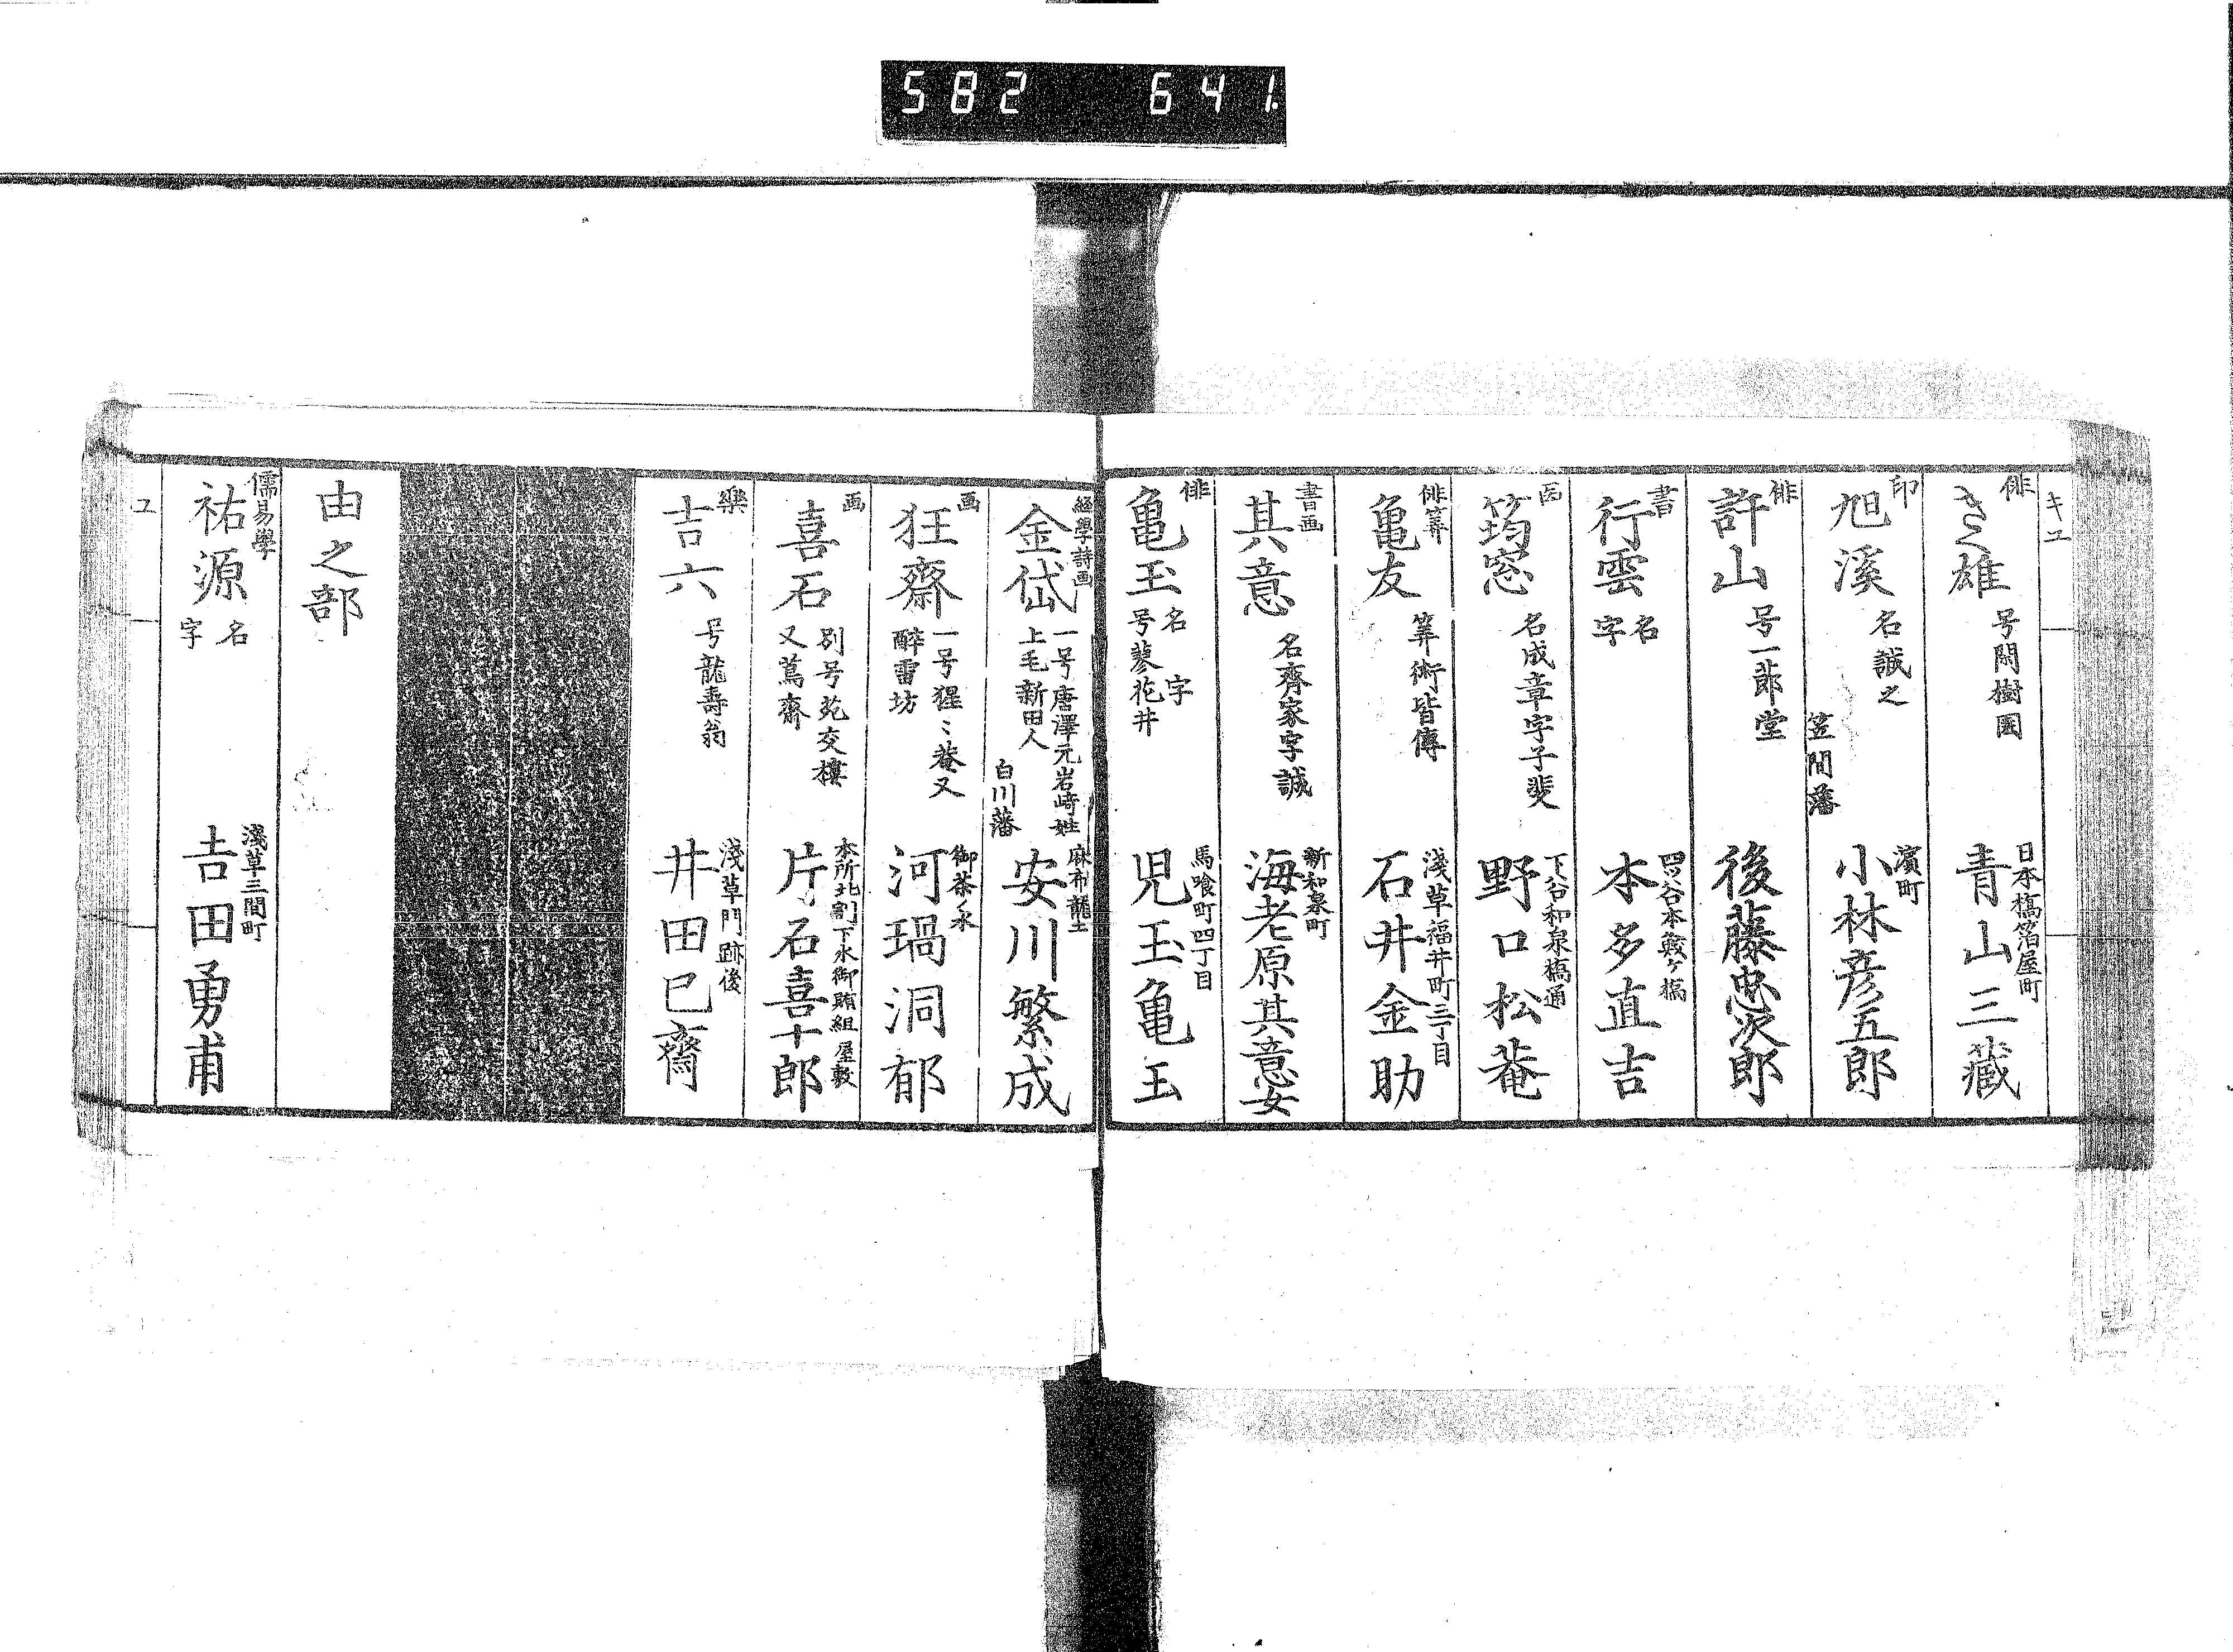 582 641.
キユ
俳
きく雄
号閑樹園
日本橋箔屋町
青山三藏
印
旭溪
名誠之
笠間藩
濱町
小林彦五郎
俳
許山
号一節堂
後藤忠次郎
書
行雲
名
字
四ツ谷本鮫ケ橋
本多直吉
医
筠窓
名成章字子斐
下谷和泉橋通
野口松菴
俳筭
亀友
筭術皆傳
淺草福井町三丁目
石井金助
書画
其意
名齊家字誠
新和泉町
海老原其意女
俳
亀玉
名 字
号蓼花井
馬喰町四丁目
児玉亀玉
經學詩画
金岱
一号唐澤元岩﨑姓
上毛新田人
白川藩
麻布龍土
安川繁成
画
狂齋
一号猩〻菴又
醉雷坊
御茶ノ水
河鍋洞郁
画
喜石
別号苑交樓
又蔦齋
本所北割下水御賄組屋敷
片石喜十郎
樂
吉六
号龍壽翁
淺草門跡後
井田巳齋
由之部
儒易學
祐源
名
字
淺草三間町
吉田勇甫
ユ